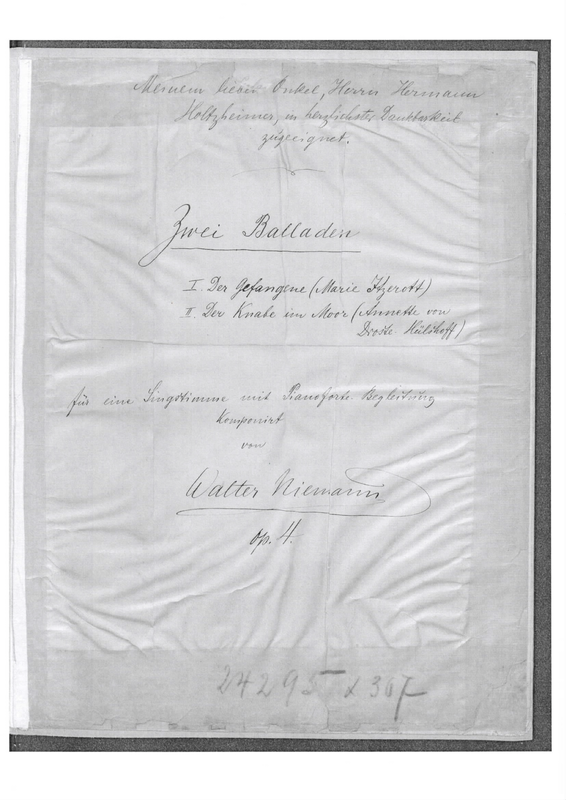 Meinem lieben Onkel, Herrn Hermann
Holtzheimer, in herzlichster Dankbarkeit
zugeeignet.
Zwei Balladen
I. Der Gefangene (Marie Itzerott)
II. Der Knabe im Moor (Annette von
Droste Hülshoff)
für eine Singstimme mit Pianoforte Begleitung
komponirt
von
Walter Niemann
op. 4.
24295 x 307